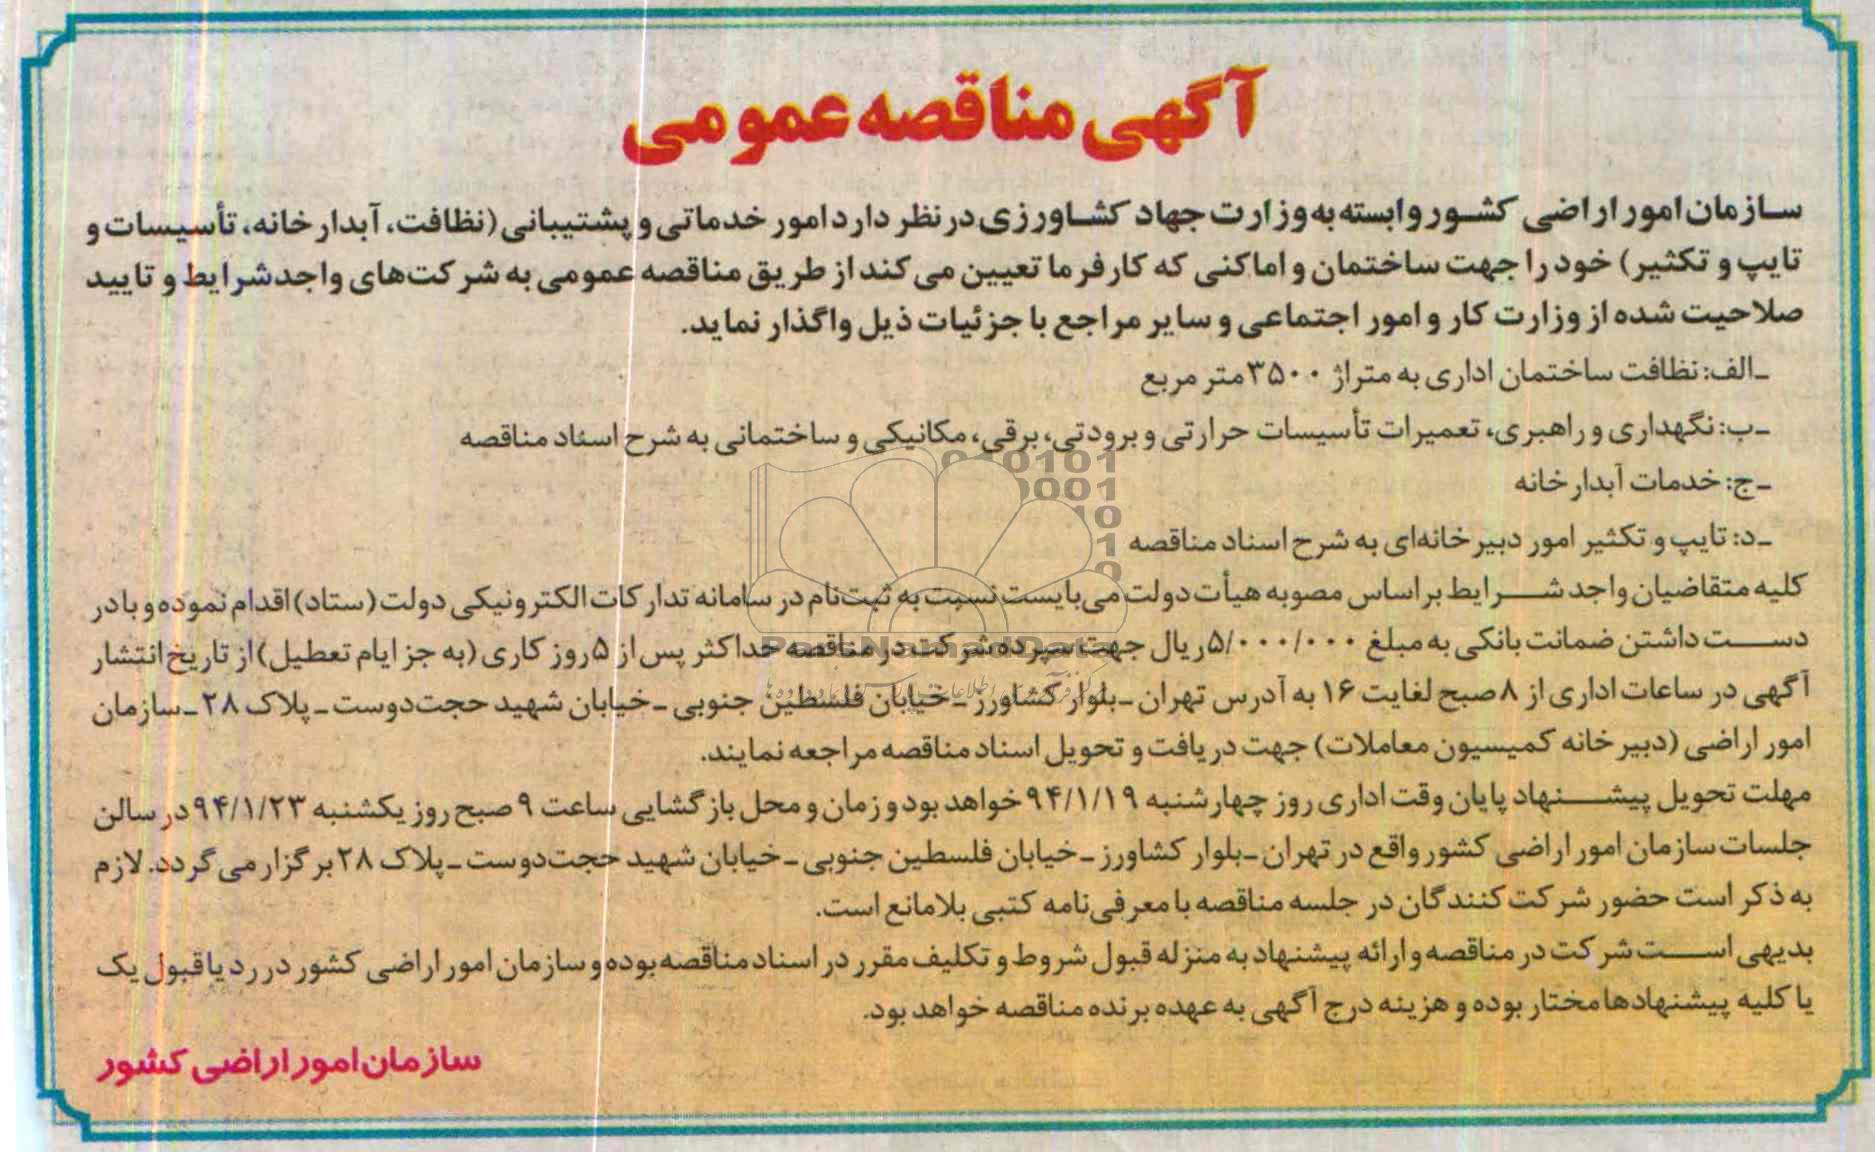 آگهی مناقصه عمومی
سازمان امور اراضی کشور وابسته به وزارت جهاد کشاورزی در نظر دارد امور خدماتی و پشتیبانی (نظافت، آبدارخانه، تأسیسات و
تایپ و تکثیر) خود را جهت ساختمان و اماکنی که کارفرما تعیین می کند از طریق مناقصه عمومی به شرکت‌های واجد شرایط و تایید
صلاحیت شده از وزارت کار و امور اجتماعی و سایر مراجع با جزئیات ذیل واگذار نماید.
ـ الف: نظافت ساختمان اداری به متراژ ۳۵۰۰ متر مربع
ـ ب: نگهداری و راهبری، تعمیرات تأسیسات حرارتی و برودتی، برقی، مکانیکی و ساختمانی به شرح اسناد مناقصه
ـ ج: خدمات آبدارخانه
ـ د: تایپ و تکثیر امور دبیرخانه‌ای به شرح اسناد مناقصه
کلیه متقاضیان واجد شرایط بر اساس مصوبه هیأت دولت می‌بایست نسبت به ثبت‌نام در سامانه تدارکات الکترونیکی دولت (ستاد) اقدام نموده و با در
دست داشتن ضمانت بانکی به مبلغ ۵/۰۰۰/۰۰۰ ریال جهت سپرده شرکت در مناقصه حداکثر پس از ۵ روز کاری (به جز ایام تعطیل) از تاریخ انتشار
آگهی در ساعات اداری از ۸ صبح لغایت ۱۶ به آدرس تهران ـ بلوار کشاورز ـ خیابان فلسطین جنوبی ـ خیابان شهید حجت‌دوست ـ پلاک ۲۸ ـ سازمان
امور اراضی (دبیرخانه کمیسیون معاملات) جهت دریافت و تحویل اسناد مناقصه مراجعه نمایند.
مهلت تحویل پیشنهاد پایان وقت اداری روز چهارشنبه ۹۴/۱/۱۹ خواهد بود و زمان و محل بازگشایی ساعت ۹ صبح روز یکشنبه ۹۴/۱/۲۳ در سالن
جلسات سازمان امور اراضی کشور واقع در تهران ـ بلوار کشاورز ـ خیابان فلسطین جنوبی ـ خیابان شهید حجت‌دوست ـ پلاک ۲۸ برگزار می گردد. لازم
به ذکر است حضور شرکت کنندگان در جلسه مناقصه با معرفی‌نامه کتبی بلامانع است.
بدیهی است شرکت در مناقصه و ارائه پیشنهاد به منزله قبول شروط و تکلیف مقرر در اسناد مناقصه بوده و سازمان امور اراضی کشور در رد یا قبول یک
یا کلیه پیشنهادها مختار بوده و هزینه درج آگهی به عهده برنده مناقصه خواهد بود.
سازمان امور اراضی کشور